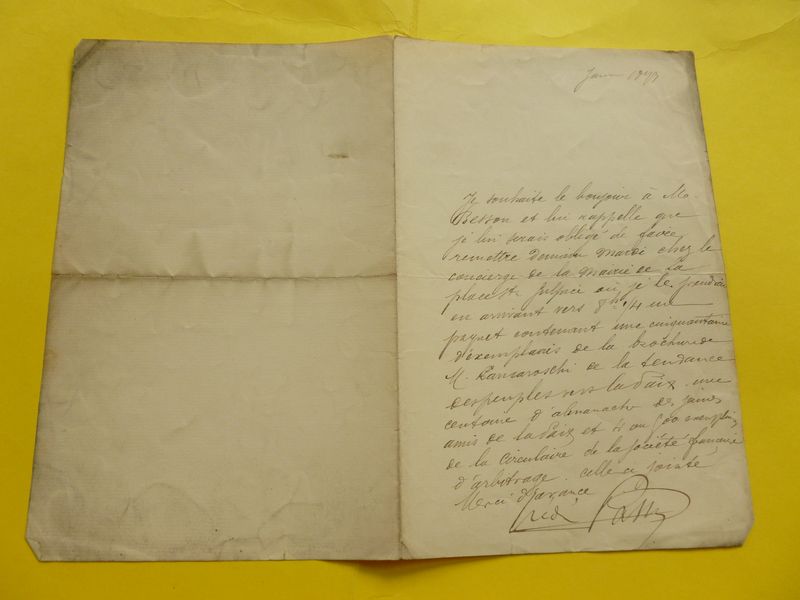 Je souhaite le bonjour à Mr
Besson et lui rappelle que
je lui serais obligé de faire
remettre demain mardi chez le
concierge de la mairie de la
place St Sulpice où je le prendrai
en arrivant vers 8h 1/4 un
paquet contenant une cinquantaine
d'exemplaires de la brochure de
M. de la tendance
des peuples vers la Paix. une
centaine d'almanachs des jeunes
amis de la Paix et 500 exemplaires
de la circulaire de la société française
d'arbitrage. celle ci jointe
Merci d'avance
Fred Passy